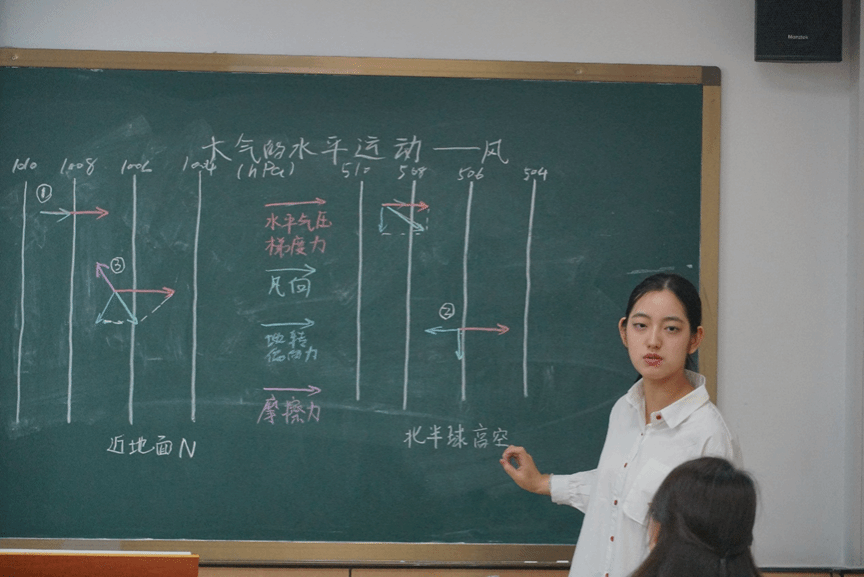 大气的水平运动——风
1010 1008 1006 1004 (hPa) 510 508 506 504
①
水平气压
梯度力
③
风向
②
地转
偏向力
摩擦力
近地面N
北半球高空